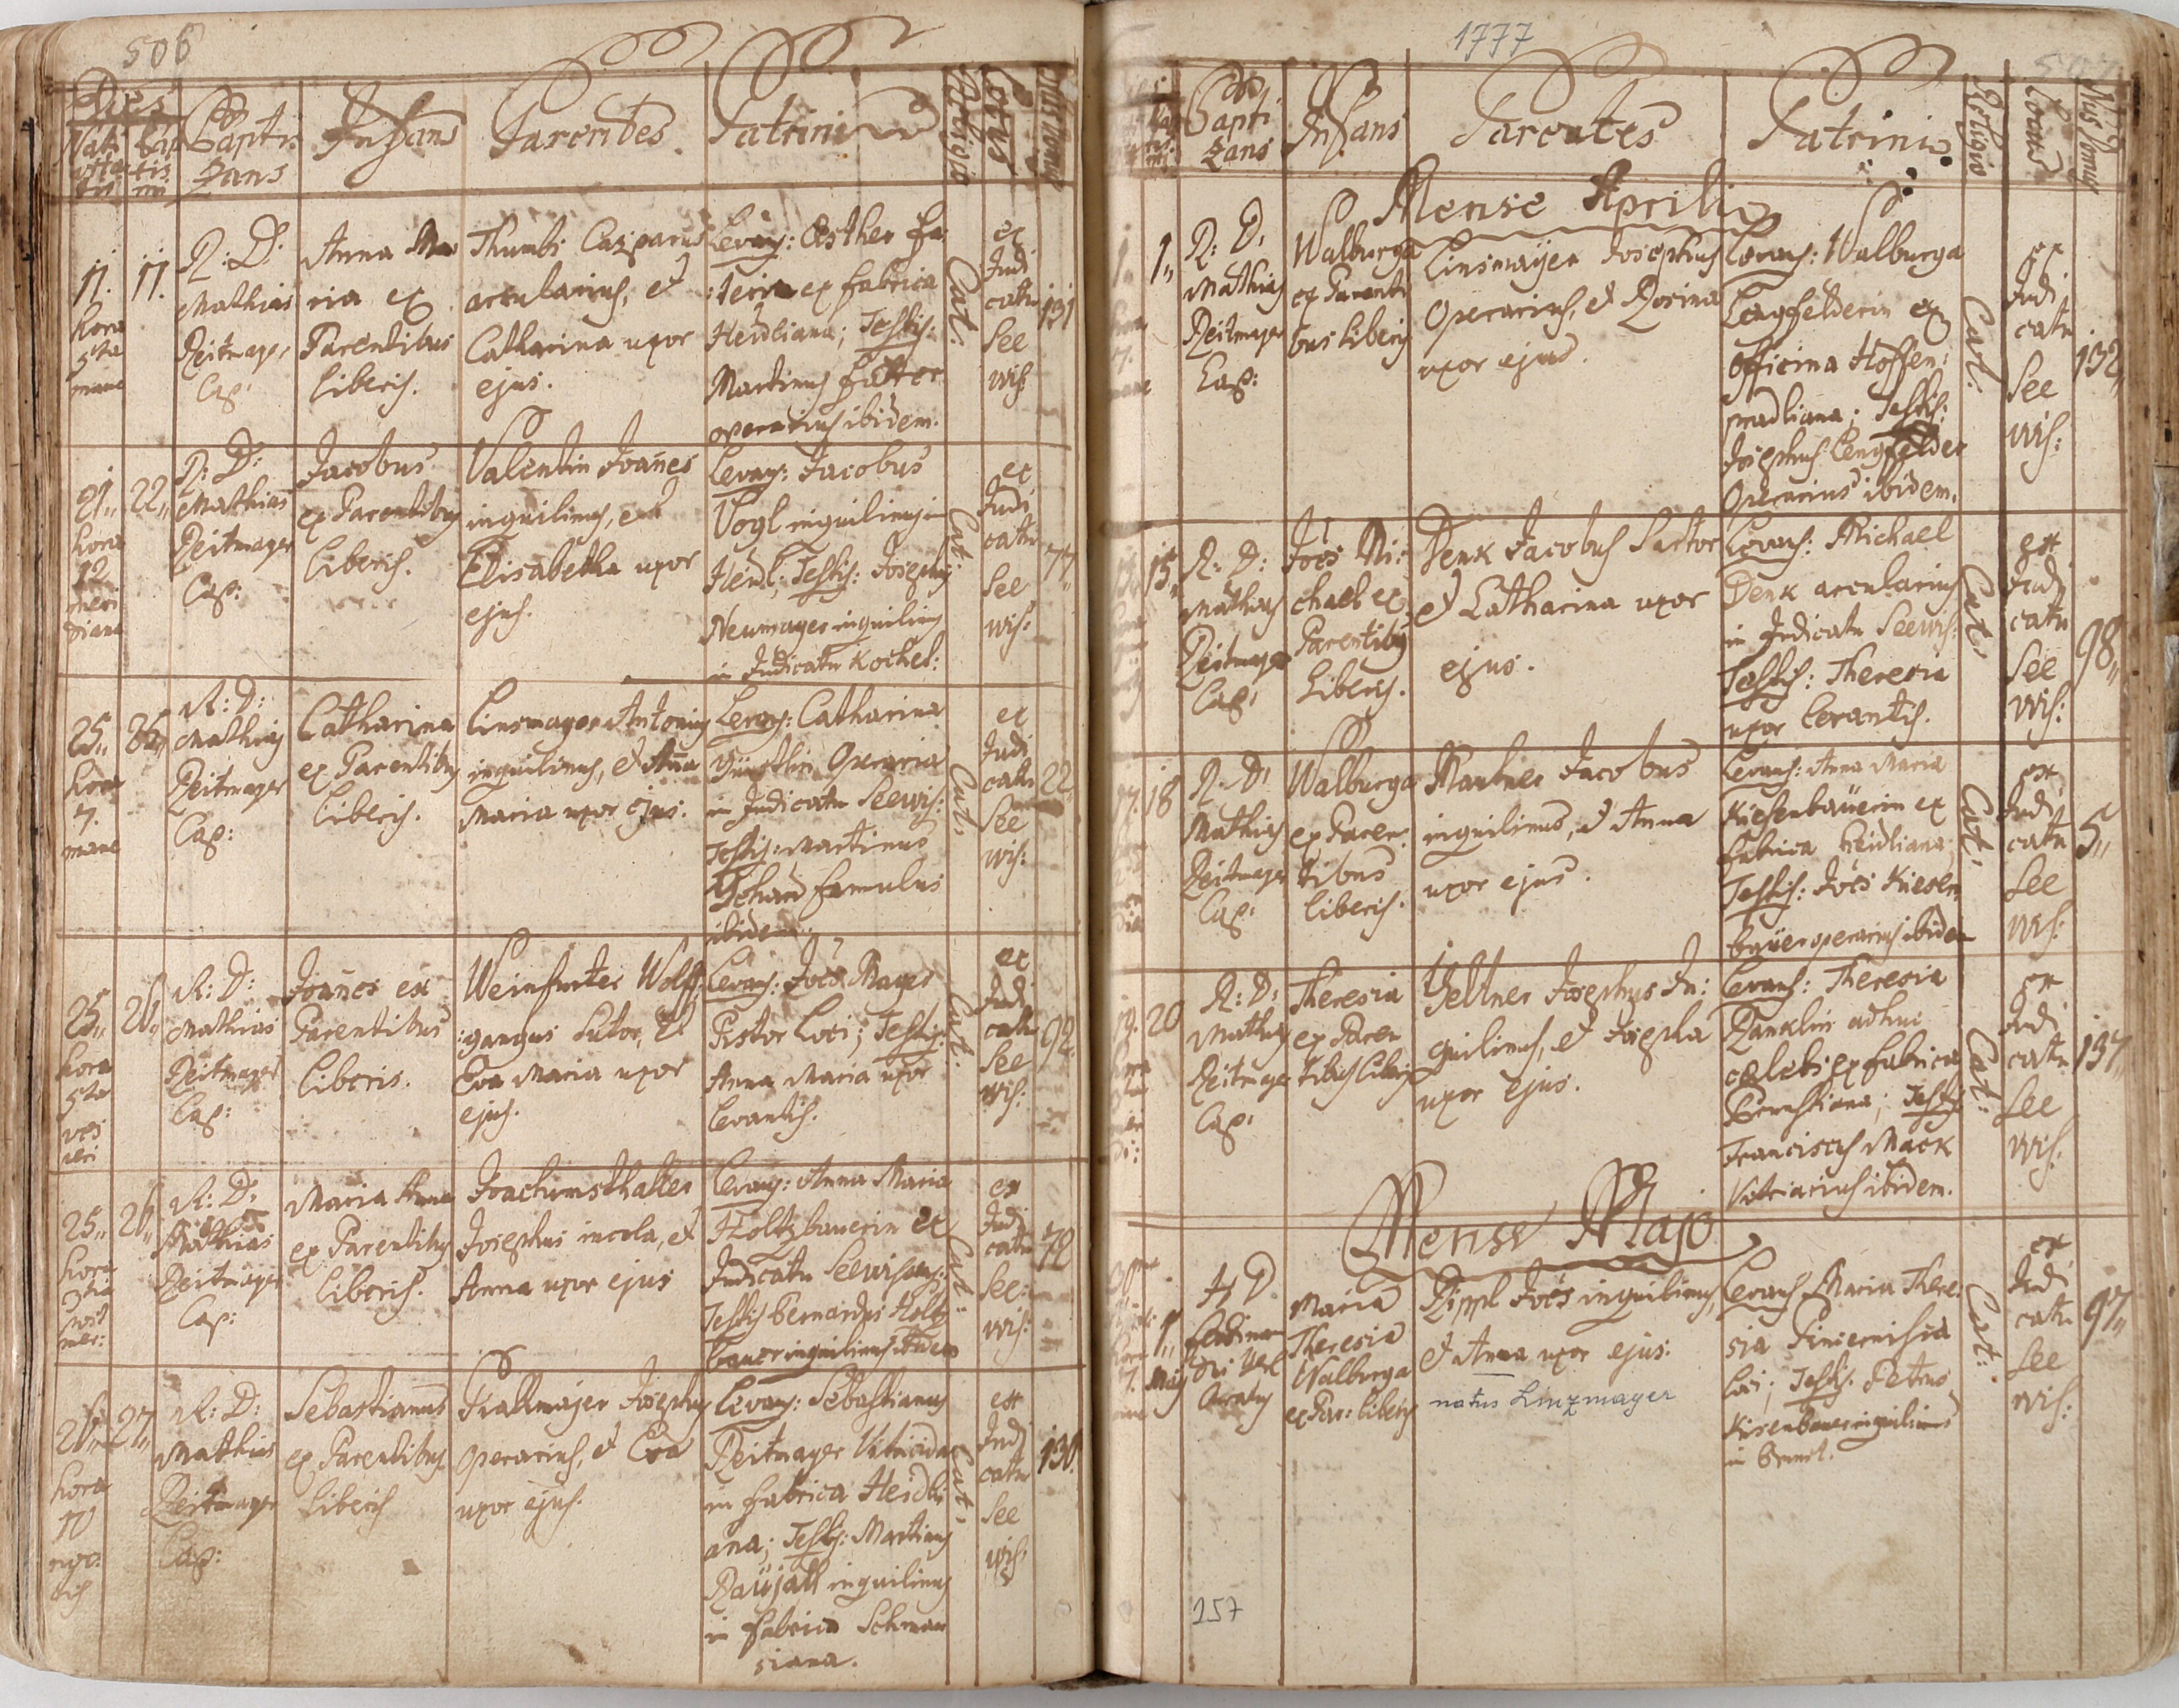 506
Dies
Baptizans
Infans
Parentes
Patrini
Religio
Locus
Nrus Domus
17.
hora
5ta
mane
17.
R: D:
Mathias
Reitmayer
Cap:
Anna Ma
ria ex
Parentibus
liberis.
Thumbs Casparus
arcularius, et
Catharina uxor
ejus.
Levans: Esther Fa
terin ex fabrica
Heidliana; Testis:
Martinus Fatter
operarius ibidem.
Cat:
ex
Judi
catu
See
wis:
131
21,,
hora
12
meri
diana
22,,
R: D:
Mathias
Reitmayer
Cap:
Jacobus
ex Parentibus
liberis.
Valentin Joañes
inquilinus, et
Elisabetha uxor
ejus.
Levans: Jacobus
Vogl inquilinus in
Heidl; Testis: Josephus
Neumayer inquilinus
in Judicatu Kochel:
Cat:
ex
Judi
catu
See
wis:
77,,
25,,
hora
7.
mane
26,,
R: D:
Mathias
Reitmayer
Cap:
Catharina
ex Parentibus
liberis.
Linsmayer Antonius
inquilinus, et Aña
Maria uxor ejus.
Levans: Catharina
Operaria
in Judicatu Seewis:
Testis: Martinus
famulus
ibidem.
Cat:
ex
Judi
catu
See
wis:
22
25,,
hora
5ta
ves
peri
26,,
R: D:
Mathias
Reitmayer
Cap:
Joañes ex
Parentibus
liberis.
Weinfurter Wolff
gangus Sutor, et
Eva Maria uxor
ejus.
Levans: Joes Mayer
Pistor Loci; Testis:
Anna Maria uxor
Levantis.
Cat:
ex
Judi
catu
See
wis:
92.
25,,
hora
3tia
post
mer:
26,,
R: D:
Mathias
Reitmayer
Cap:
Maria Anna
ex Parentibus
liberis.
Joachimsthaller
Josephus incola, et
Anna uxor ejus
Levans: Anna Maria
Holtzbauerin ex
Judicatu Seewisens:
Testis Bernardus Holtz
bauer inquilinus ibidem
Cat:
ex
Judi
catu
See:
wis:
72
26,,
hora
10
noc:
tis
27,,
R: D:
Mathias
Reitmayer
Cap:
Sebastianus
ex Parentibus
liberis
Josephus
operarius, et Eva
uxor ejus.
Levans: Sebastianus
Reitmayer Vitriarius
in fabrica Heidli
ana; Testis: Martinus
inquilinus
in fabrica Schmau
siana.
Cat:
ex
Judi
catu
See
wis:
130.
1777
Bapti
zans
Infans
Parentes
Patrini
Religio
Locus
Nrus Domus
Mense Aprili
1,,
R: D:
Mathias
Reitmayer
Cap:
Walburga
ex Parenti
bus liberis
Linsmayer Josephus
Operarius, et Rosina
uxor ejus.
Levans: Walburga
Lengfelderin ex
officina Hoffen:
pradliana; Testis:
Josephus Lengfelder
Operarius ibidem.
Cat:
ex
Judi
catu
See
wis:
132,,
15,,
R: D:
Mathias
Reitmayer
Cap:
Joes Mi:
chael ex
Parentibus
liberis.
Denk Jacobus Sartor
et Catharina uxor
ejus.
Levans: Michael
Denk arcularius
in Judicatu Seewis:
Testis: Theresia
uxor Levantis.
Cat:
ex
Judi
catu
See
wis:
98,,
17.
18
R: D:
Mathias
Reitmayer
Cap:
Walburga
ex Paren
tibus
liberis.
Jacobus
inquilinus, et Anna
uxor ejus.
Levans: Anna Maria
Kiesenbauerin ex
fabrica Heidliana,
Testis: Joes Kiesen
bauer operarius ibidem
Cat:
ex
Judi
catu
See
wis:
5,,
19.
20
R: D:
Mathias
Reitmayer
Cap:
Theresia
ex Paren
tibus liberis
Yeltner Josephus In:
quilinus, et Josepha
uxor ejus.
Levans: Theresia
Ranklin adhuc
caelebs ex fabrica
Testis
Franciscus Mack
Vitriarius ibidem.
Cat:
ex
Judi
catu
See
wis:
137
Mense Majo
1,,
Maij
D
Ferdinan
Maria
Theresia
Walburga
ex Par: liberis
Rippl Joes inquilinus,
et Anna uxor ejus:
natus Linzmayer
Levans Maria There:
sia
Loci; Testis: Petrus
Kisenbauer inquilinus
Cat:
ex
Judi
catu
See
wis:
97,,
257